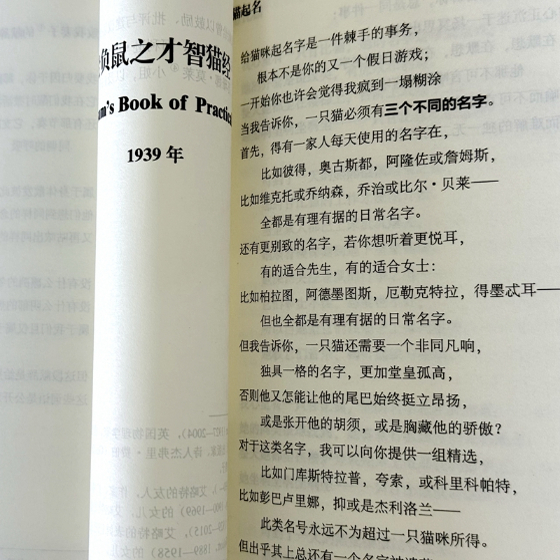 负鼠之才智猫经
m's Book of Practic
1939 年
猫起名
给猫咪起名字是一件棘手的事务,
根本不是你的又一个假日游戏;
一开始你也许会觉得我疯到一塌糊涂
当我告诉你,一只猫必须有三个不同的名字。
首先,得有一家人每天使用的名字在,
比如彼得,奥古斯都,阿隆佐或詹姆斯,
比如维克托或乔纳森,乔治或比尔·贝莱——
全都是有理有据的日常名字。
还有更别致的名字,若你想听着更悦耳,
有的适合先生,有的适合女士:
比如柏拉图,阿德墨图斯,厄勒克特拉,得墨忒耳——
但也全都是有理有据的日常名字。
但我告诉你,一只猫还需要一个非同凡响,
独具一格的名字,更加堂皇孤高,
否则他又怎能让他的尾巴始终挺立昂扬,
或是张开他的胡须,或是胸藏他的骄傲?
对于这类名字,我可以向你提供一组精选,
比如门库斯特拉普,夸索,或科里科帕特,
比如彭巴卢里娜,抑或是杰利洛兰——
此类名号永远不为超过一只猫咪所得。
但出乎其上总还有一个名字